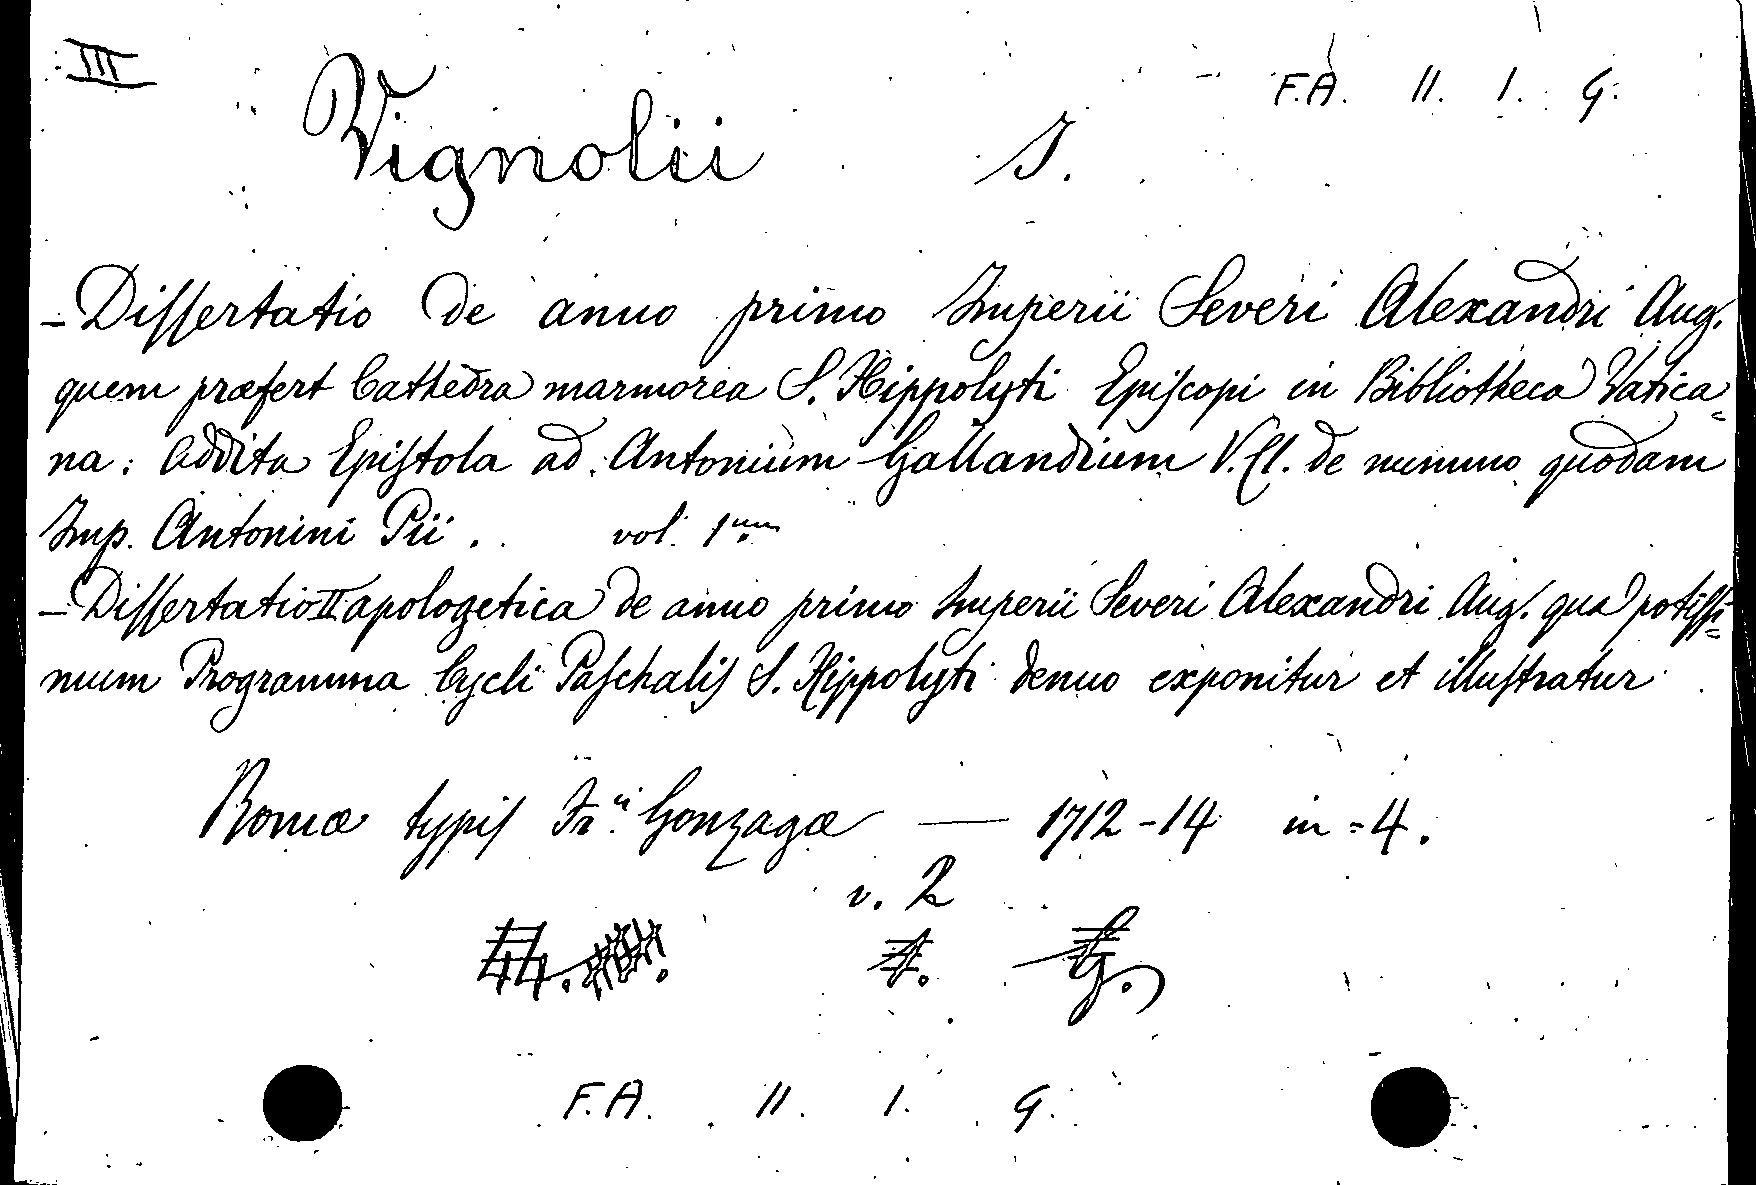 III
F.A. II. I. G.
Vignolii J.
- Dissertatio de anno primo Imperii Severi Alexandri Aug.
quem præfert Cathedra marmorea S. Hippolyti Episcopi in Bibliotheca Vatica=
na: addita Epistola ad Antonium Gallandium V. Cl. de nummo quodam
Imp. Antonini Pii. vol. 1um
- Dissertatio II apologetica de anno primo Imperii Severi Alexandri Aug. qua potissi=
mum Programma Cycli Paschalis S. Hippolyti denuo exponitur et illustratur
Romæ typis Fr.ci Gonzagæ — 1712-14 in=4.
v. 2
F.A. II. I. G.